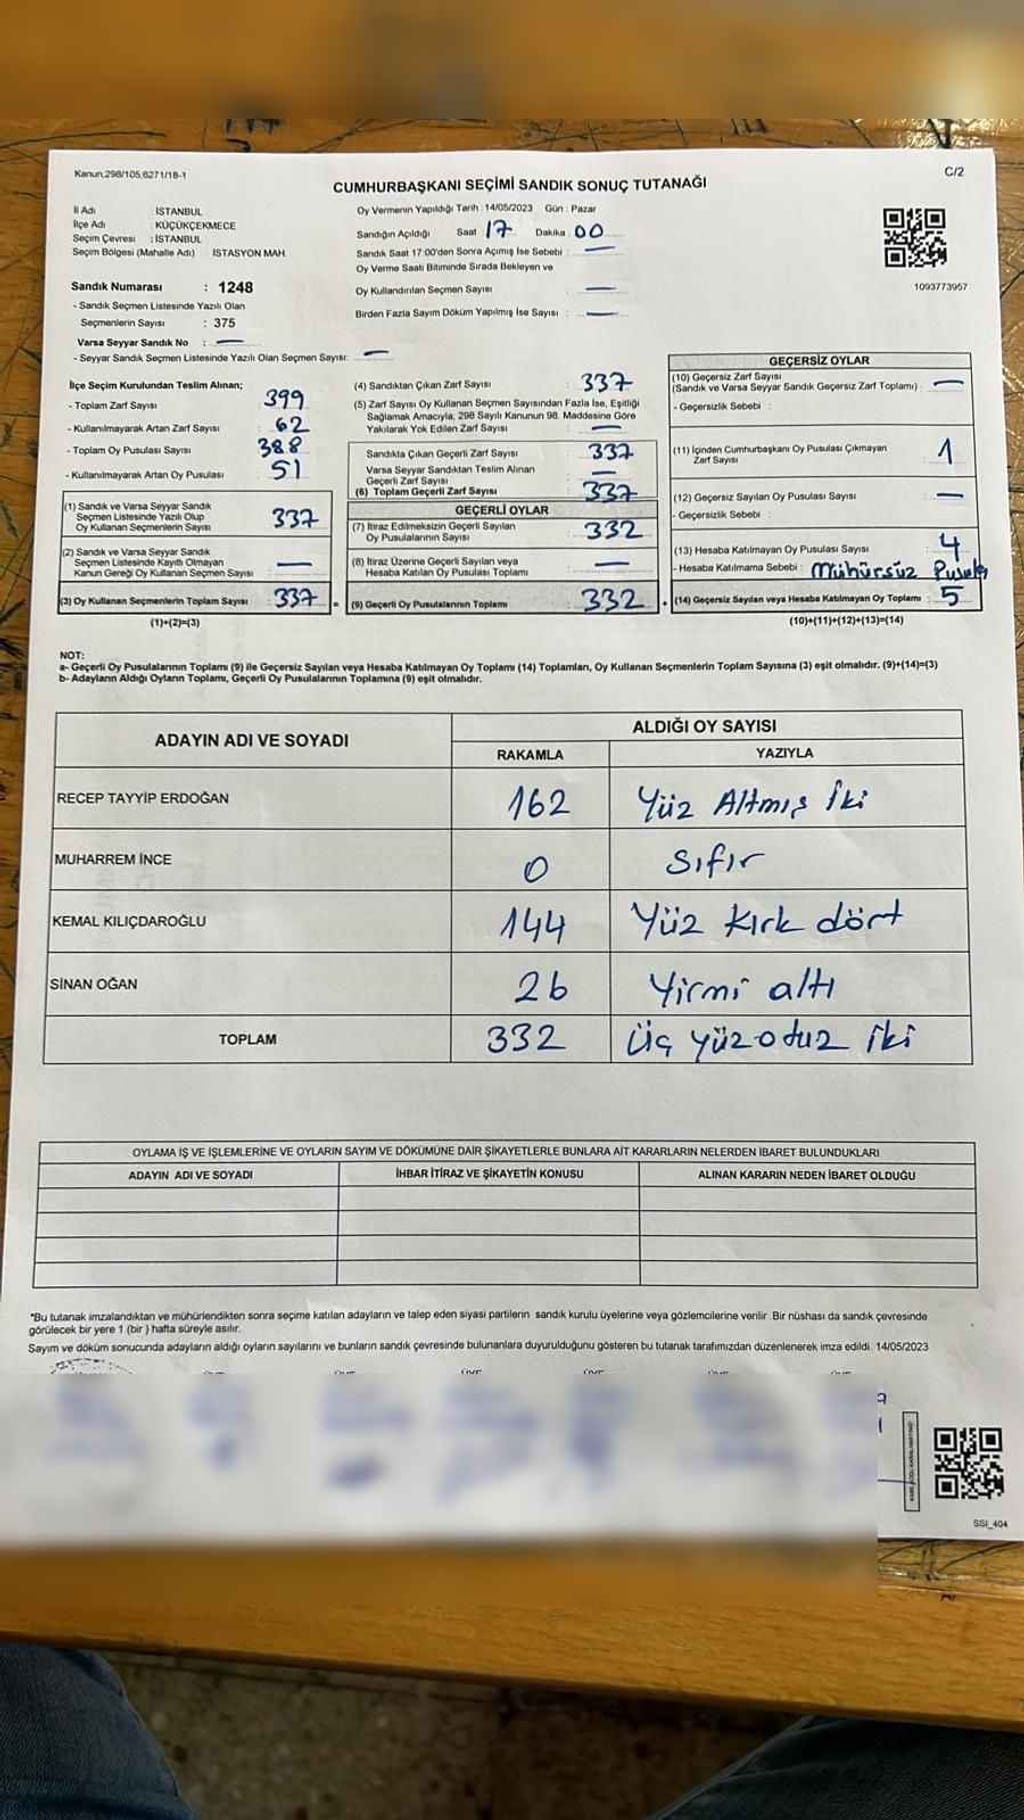 Kanun,298/105,6271/18-1
C/2
CUMHURBAŞKANI SEÇİMİ SANDIK SONUÇ TUTANAĞI
İl Adı İSTANBUL
İlçe Adı KÜÇÜKÇEKMECE
Seçim Çevresi : İSTANBUL
Seçim Bölgesi (Mahalle Adı) İSTASYON MAH.
Sandık Numarası : 1248
- Sandık Seçmen Listesinde Yazılı Olan
Seçmenlerin Sayısı : 375
Varsa Seyyar Sandık No : —
- Seyyar Sandık Seçmen Listesinde Yazılı Olan Seçmen Sayısı: —
Oy Vermenin Yapıldığı Tarih : 14/05/2023 Gün : Pazar
Sandığın Açıldığı Saat 17 Dakika 00
Sandık Saat 17:00'den Sonra Açımış İse Sebebi : —
Oy Verme Saati Bitiminde Sırada Bekleyen ve
Oy Kullandırılan Seçmen Sayısı : —
Birden Fazla Sayım Döküm Yapılmış İse Sayısı : —
1093773957
İlçe Seçim Kurulundan Teslim Alınan;
- Toplam Zarf Sayısı 399
- Kullanılmayarak Artan Zarf Sayısı 62
- Toplam Oy Pusulası Sayısı 388
- Kullanılmayarak Artan Oy Pusulası 51
(1) Sandık ve Varsa Seyyar Sandık
Seçmen Listesinde Yazılı Olup
Oy Kullanan Seçmenlerin Sayısı 337
(2) Sandık ve Varsa Seyyar Sandık
Seçmen Listesinde Kayıtlı Olmayan
Kanun Gereği Oy Kullanan Seçmen Sayısı —
(3) Oy Kullanan Seçmenlerin Toplam Sayısı 337
(1)+(2)=(3)
(4) Sandıktan Çıkan Zarf Sayısı 337
(5) Zarf Sayısı Oy Kullanan Seçmen Sayısından Fazla İse, Eşitliği
Sağlamak Amacıyla, 298 Sayılı Kanunun 98. Maddesine Göre
Yakılarak Yok Edilen Zarf Sayısı —
Sandıkta Çıkan Geçerli Zarf Sayısı 337
Varsa Seyyar Sandıktan Teslim Alınan
Geçerli Zarf Sayısı —
(6) Toplam Geçerli Zarf Sayısı 337
GEÇERLİ OYLAR
(7) İtiraz Edilmeksizin Geçerli Sayılan
Oy Pusulalarının Sayısı 332
(8) İtiraz Üzerine Geçerli Sayılan veya
Hesaba Katılan Oy Pusulası Toplamı —
= (9) Geçerli Oy Pusulalarının Toplamı 332
GEÇERSİZ OYLAR
(10) Geçersiz Zarf Sayısı
(Sandık ve Varsa Seyyar Sandık Geçersiz Zarf Toplamı) : —
- Geçersizlik Sebebi :
(11) İçinden Cumhurbaşkanı Oy Pusulası Çıkmayan
Zarf Sayısı 1
(12) Geçersiz Sayılan Oy Pusulası Sayısı : —
- Geçersizlik Sebebi :
(13) Hesaba Katılmayan Oy Pusulası Sayısı 4
- Hesaba Katılmama Sebebi : Mühürsüz Pusula
+ (14) Geçersiz Sayılan veya Hesaba Katılmayan Oy Toplamı : 5
(10)+(11)+(12)+(13)=(14)
NOT:
a- Geçerli Oy Pusulalarının Toplamı (9) ile Geçersiz Sayılan veya Hesaba Katılmayan Oy Toplamı (14) Toplamları, Oy Kullanan Seçmenlerin Toplam Sayısına (3) eşit olmalıdır. (9)+(14)=(3)
b- Adayların Aldığı Oyların Toplamı, Geçerli Oy Pusulalarının Toplamına (9) eşit olmalıdır.
ADAYIN ADI VE SOYADI ALDIĞI OY SAYISI
RAKAMLA YAZIYLA
RECEP TAYYİP ERDOĞAN 162 Yüz Altmış İki
MUHARREM İNCE 0 Sıfır
KEMAL KILIÇDAROĞLU 144 Yüz Kırk dört
SİNAN OĞAN 26 Yirmi altı
TOPLAM 332 Üç yüzotuz iki
OYLAMA İŞ VE İŞLEMLERİNE VE OYLARIN SAYIM VE DÖKÜMÜNE DAİR ŞİKAYETLERLE BUNLARA AİT KARARLARIN NELERDEN İBARET BULUNDUKLARI
ADAYIN ADI VE SOYADI İHBAR İTİRAZ VE ŞİKAYETİN KONUSU ALINAN KARARIN NEDEN İBARET OLDUĞU
*Bu tutanak imzalandıktan ve mühürlendikten sonra seçime katılan adayların ve talep eden siyasi partilerin sandık kurulu üyelerine veya gözlemcilerine verilir. Bir nüshası da sandık çevresinde
görülecek bir yere 1 (bir ) hafta süreyle asılır.
Sayım ve döküm sonucunda adayların aldığı oyların sayılarını ve bunların sandık çevresinde bulunanlara duyurulduğunu gösteren bu tutanak tarafımızdan düzenlenerek imza edildi. 14/05/2023
SSI_404